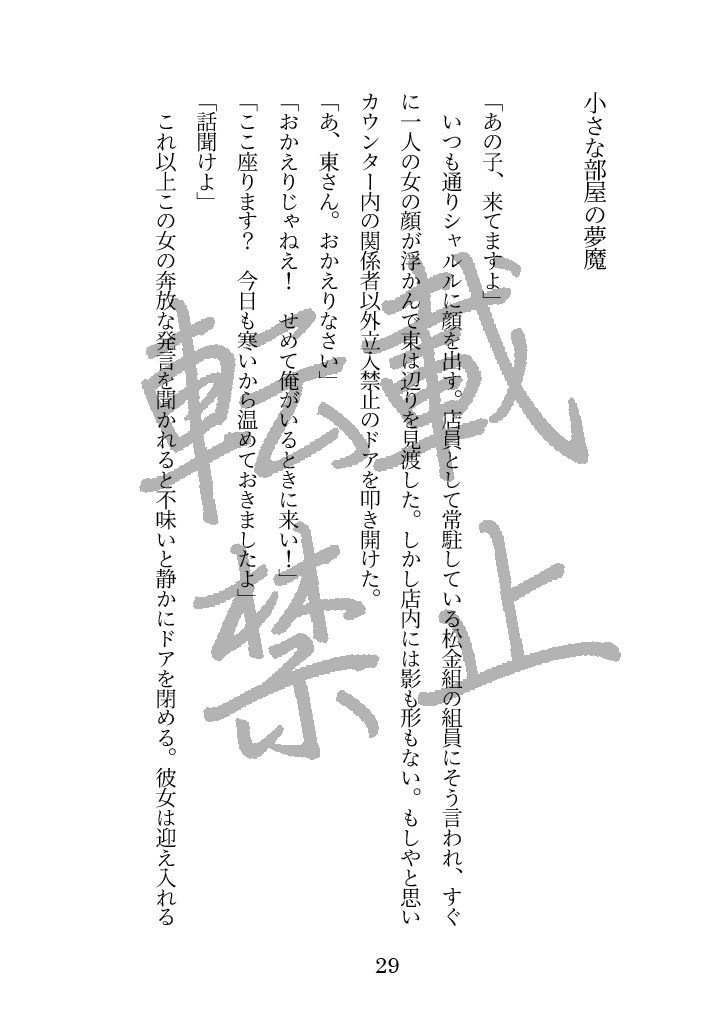 小さな部屋の夢魔
「あの子、来てますよ」
いつも通りシャルルに顔を出す。店員として常駐している松金組の組員にそう言われ、すぐ
に一人の女の顔が浮かんで東は辺りを見渡した。しかし店内には影も形もない。もしやと思い
カウンター内の関係者以外立入禁止のドアを叩き開けた。
「あ、東さん。おかえりなさい」
「おかえりじゃねえ！　せめて俺がいるときに来い！」
「ここ座ります？　今日も寒いから温めておきましたよ」
「話聞けよ」
これ以上この女の奔放な発言を聞かれると不味いと静かにドアを閉める。彼女は迎え入れる
転載
禁止
29